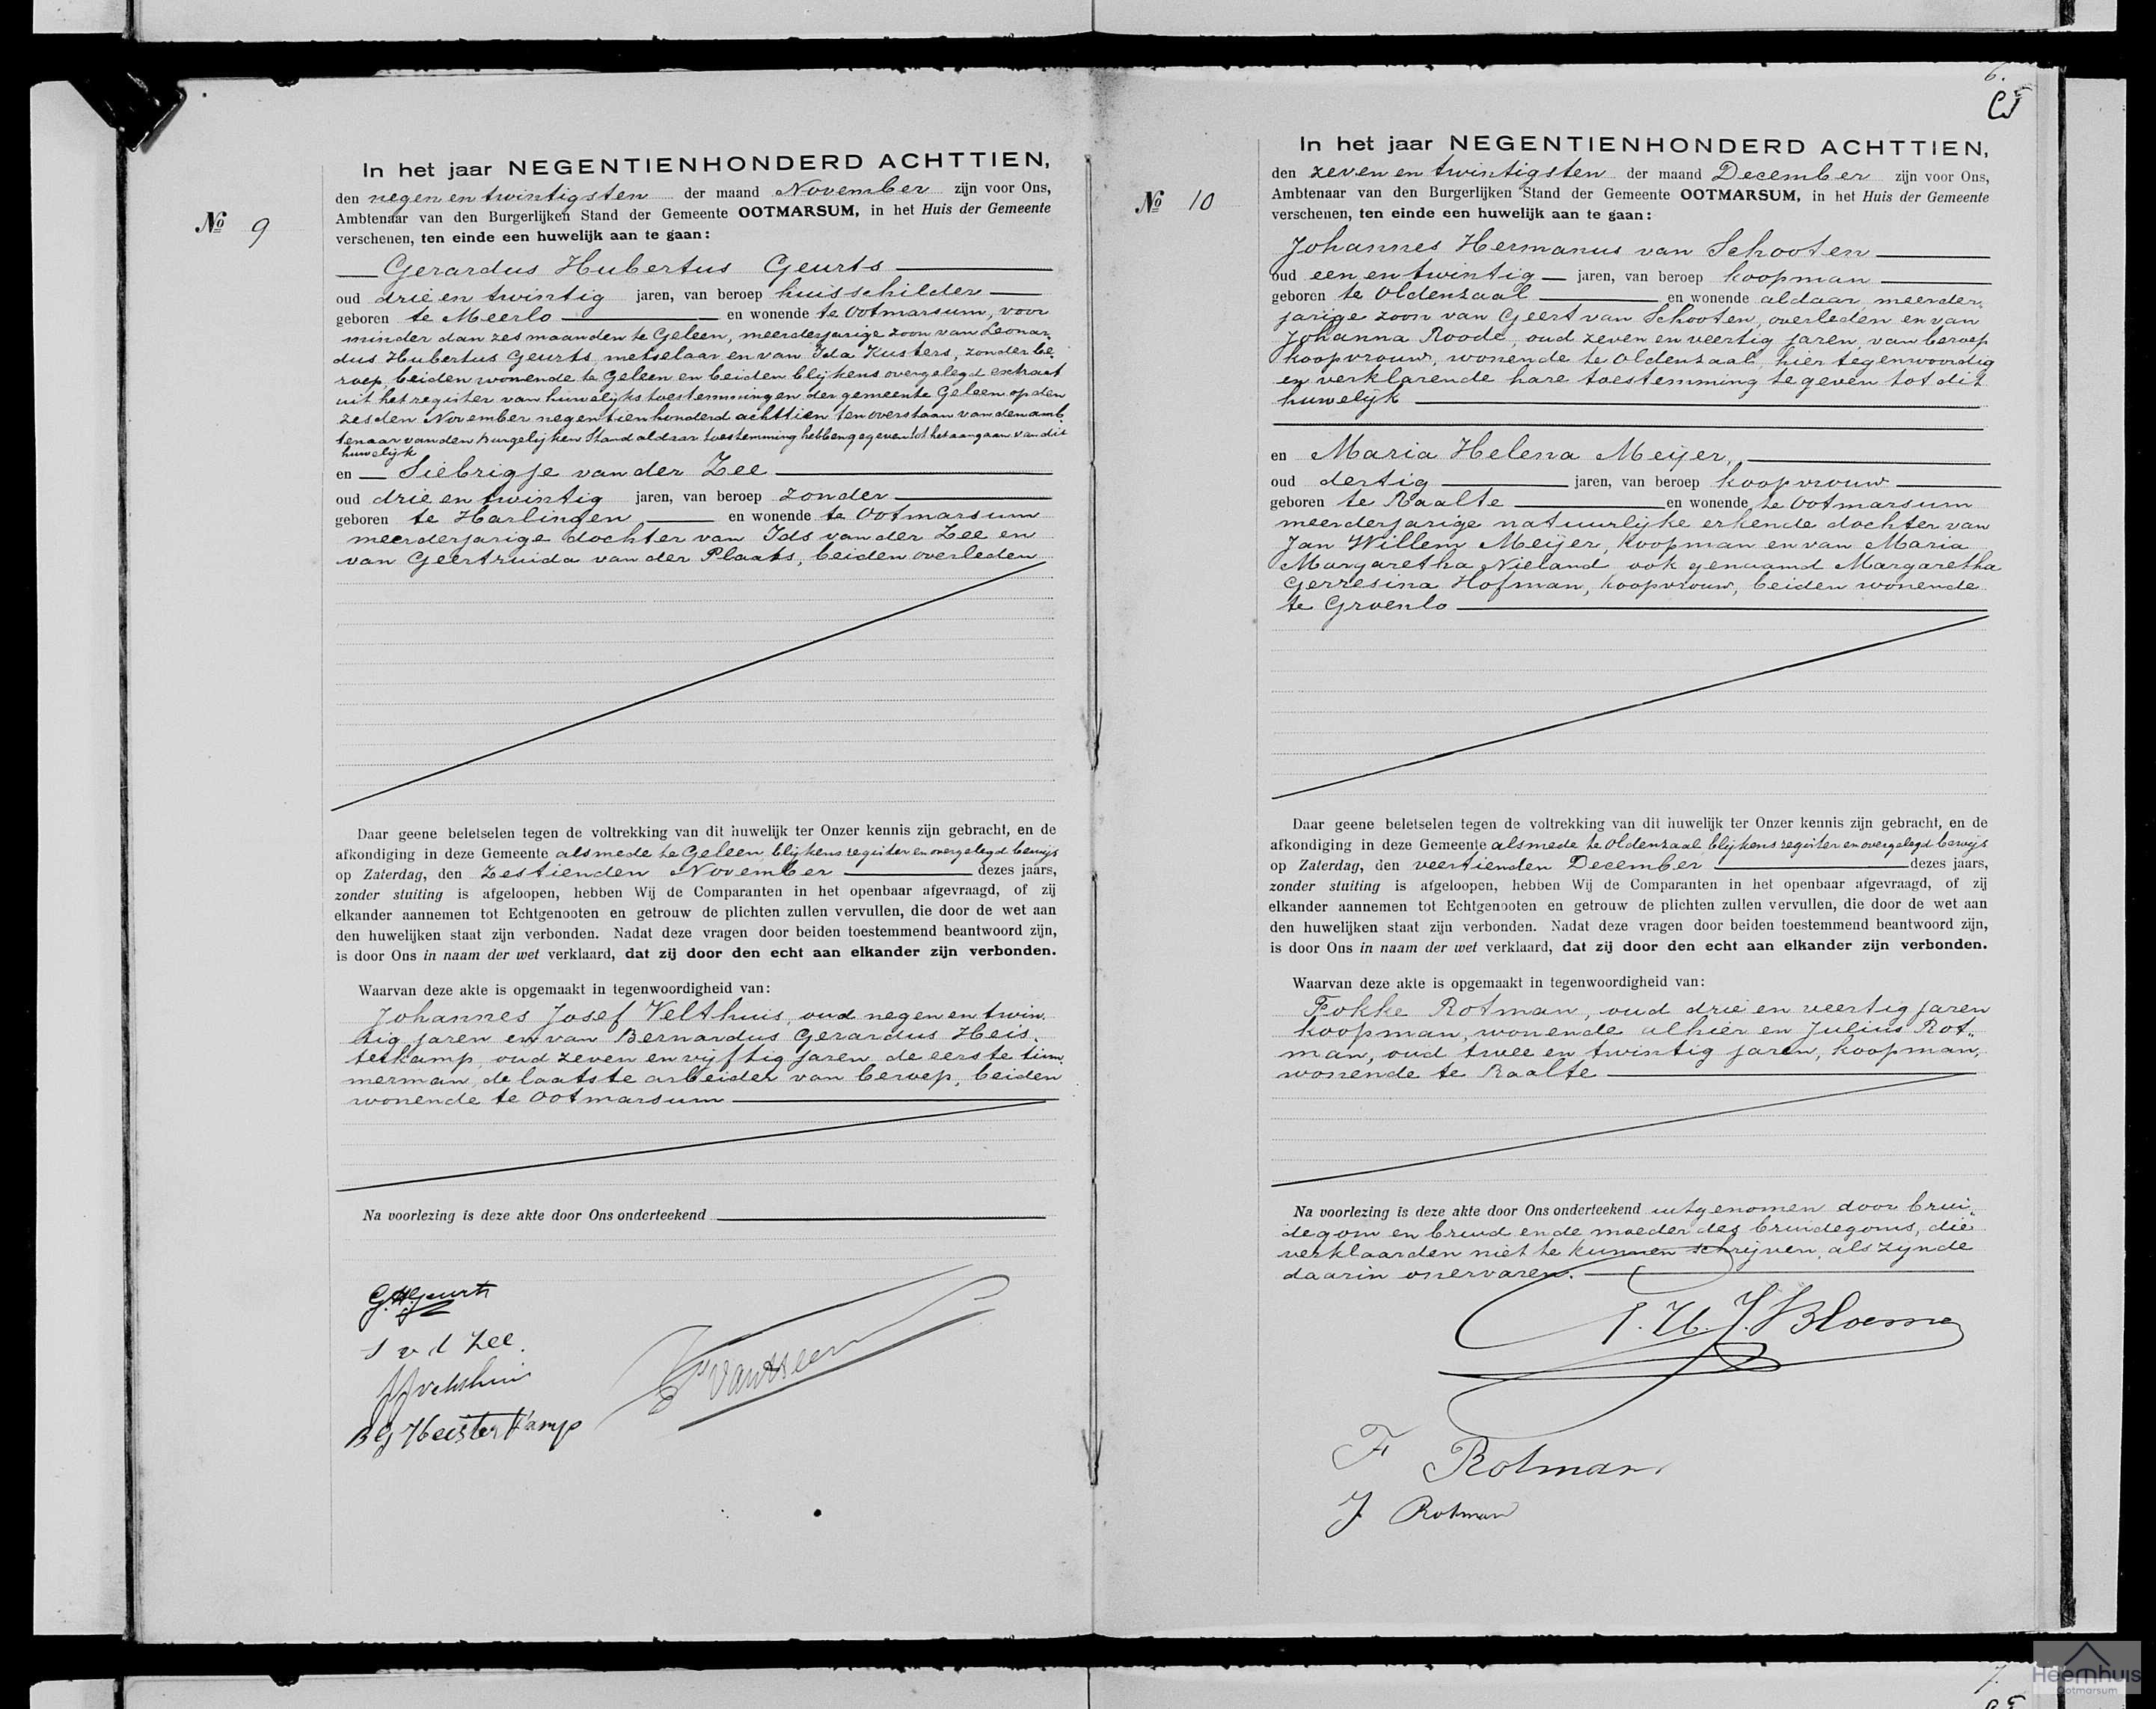 In het jaar NEGENTIENHONDERD ACHTTIEN,
den negen en twintigsten der maand November zijn voor Ons,
Ambtenaar van den Burgerlijken Stand der Gemeente OOTMARSUM, in het Huis der Gemeente
verschenen, ten einde een huwelijk aan te gaan:
No 9
Gerardus Hubertus Geurts
oud drie en twintig jaren, van beroep huisschilder
geboren te Meerlo en wonende te Ootmarsum, voor
minder dan zes maanden te Geleen, meerderjarige zoon van Leonar
dus Hubertus Geurts, metselaar en van Ida Kusters, zonder be
roep, beiden wonende te Geleen en beiden blijkens overgelegd extract
uit het register van huwelijkstoestemmingen der gemeente Geleen op den
zesden November negentienhonderd achttien ten overstaan van den amb
tenaar van den Burgelijken Stand aldaar toestemming hebben gegeven tot het aangaan van dit
huwelijk
en Siebrigje van der Zee
oud drie en twintig jaren, van beroep zonder
geboren te Harlingen en wonende te Ootmarsum
meerderjarige dochter van Ids van der Zee en
van Geertruida van der Plaats, beiden overleden
Daar geene beletselen tegen de voltrekking van dit huwelijk ter Onzer kennis zijn gebracht, en de
afkondiging in deze Gemeente alsmede te Geleen, blijkens register en overgelegd bewijs
op Zaterdag, den Zestienden November dezes jaars,
zonder stuiting is afgeloopen, hebben Wij de Comparanten in het openbaar afgevraagd, of zij
elkander aannemen tot Echtgenooten en getrouw de plichten zullen vervullen, die door de wet aan
den huwelijken staat zijn verbonden. Nadat deze vragen door beiden toestemmend beantwoord zijn,
is door Ons in naam der wet verklaard, dat zij door den echt aan elkander zijn verbonden.
Waarvan deze akte is opgemaakt in tegenwoordigheid van:
Johannes Josef Velthuis, oud negen en twin
tig jaren en van Bernardus Gerardus Heis
terkamp, oud zeven en vijftig jaren, de eerste tim
merman, de laatste arbeider van beroep, beiden
wonende te Ootmarsum
Na voorlezing is deze akte door Ons onderteekend
G.H. Geurts
S v d Zee.
JJ Velthuis
BG Heisterkamp
6.
In het jaar NEGENTIENHONDERD ACHTTIEN,
den zeven en twintigsten der maand December zijn voor Ons,
Ambtenaar van den Burgerlijken Stand der Gemeente OOTMARSUM, in het Huis der Gemeente
verschenen, ten einde een huwelijk aan te gaan:
No 10
Johannes Hermanus van Schooten
oud een en twintig jaren, van beroep koopman
geboren te Oldenzaal en wonende aldaar, meerder,
jarige zoon van Geert van Schooten, overleden en van
Johanna Roode, oud zeven en veertig jaren, van beroep
koopvrouw, wonende te Oldenzaal, hier tegenwoordig
en verklarende hare toestemming te geven tot dit
huwelijk
en Maria Helena Meijer,
oud dertig jaren, van beroep koopvrouw
geboren te Raalte en wonende te Ootmarsum
meerderjarige natuurlijke erkende dochter van
Jan Willem Meijer, koopman en van Maria
Margaretha Nieland ook genaamd Margaretha
Gerresina Hofman, koopvrouw, beiden wonende
te Groenlo
Daar geene beletselen tegen de voltrekking van dit huwelijk ter Onzer kennis zijn gebracht, en de
afkondiging in deze Gemeente alsmede te Oldenzaal, blijkens register en overgelegd bewijs
op Zaterdag, den veertienden December dezes jaars,
zonder stuiting is afgeloopen, hebben Wij de Comparanten in het openbaar afgevraagd, of zij
elkander aannemen tot Echtgenooten en getrouw de plichten zullen vervullen, die door de wet aan
den huwelijken staat zijn verbonden. Nadat deze vragen door beiden toestemmend beantwoord zijn,
is door Ons in naam der wet verklaard, dat zij door den echt aan elkander zijn verbonden.
Waarvan deze akte is opgemaakt in tegenwoordigheid van:
Fokke Rotman, oud drie en veertig jaren
koopman, wonende alhier en Julius Rot„
man, oud twee en twintig jaren, koopman,
wonende te Raalte
Na voorlezing is deze akte door Ons onderteekend uitgenomen door brui„
degom en bruid en de moeder des bruidegoms, die
verklaarden niet te kunnen schrijven, als zijnde
daarin onervaren.
Bloeme
F Rotman
J. Rotman
7.
Heemhuis
Ootmarsum